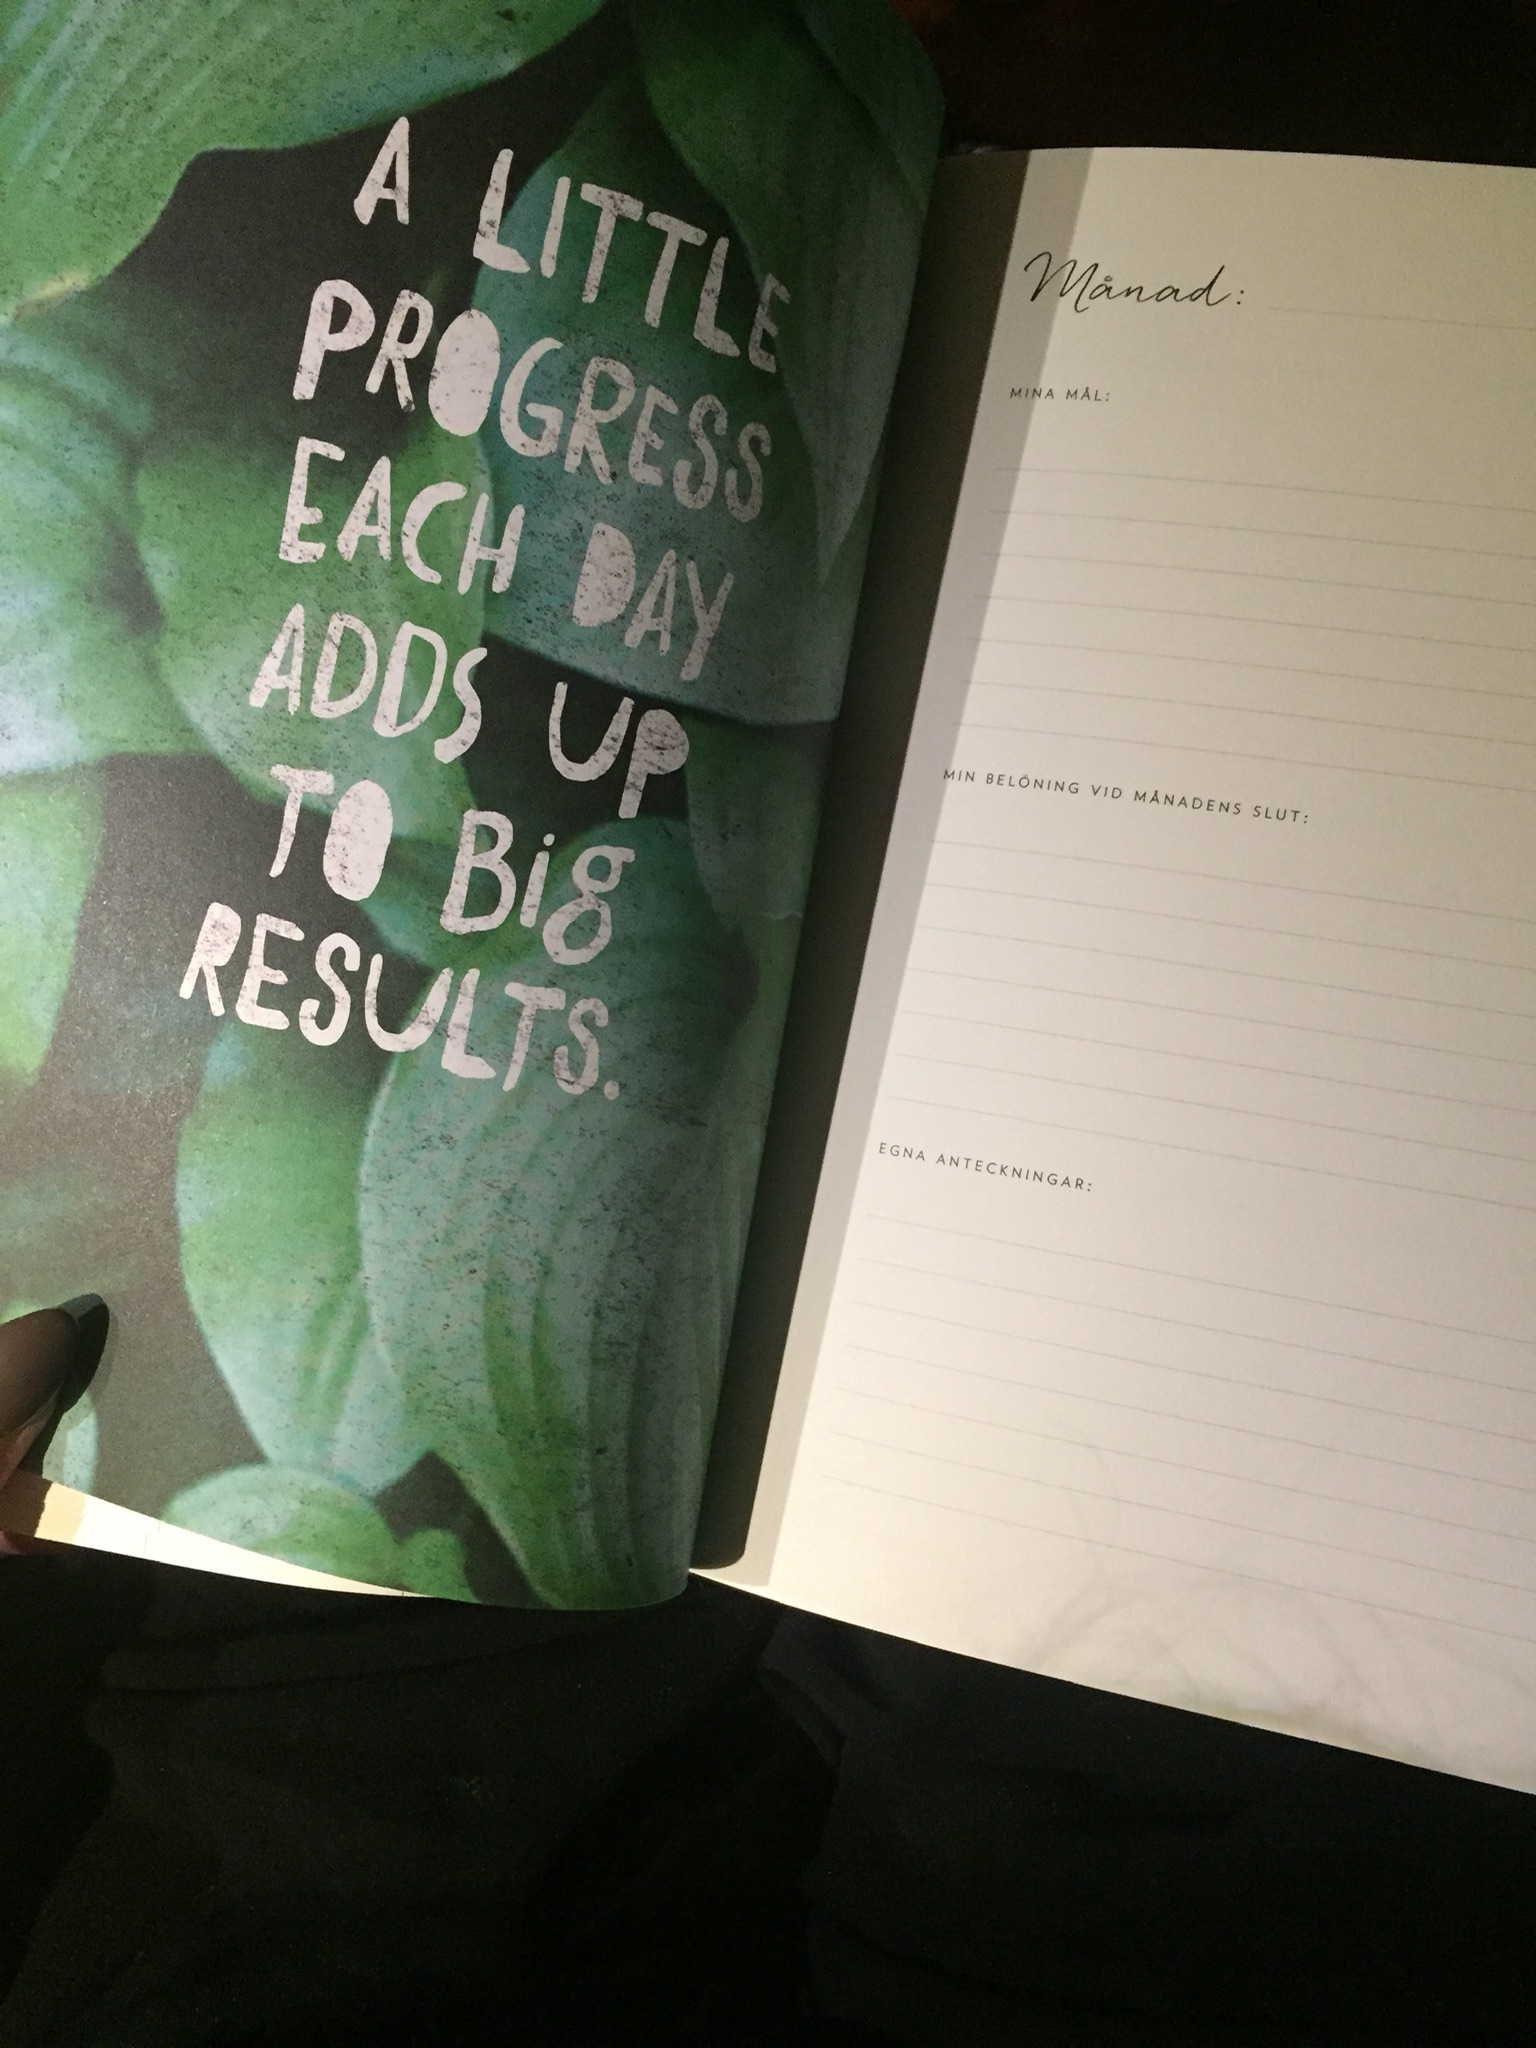 A LITTLE
PROGRESS
EACH DAY
ADDS UP
TO Big
RESULTS.
Månad:
MINA MÅL:
MIN BELÖNING VID MÅNADENS SLUT:
EGNA ANTECKNINGAR: